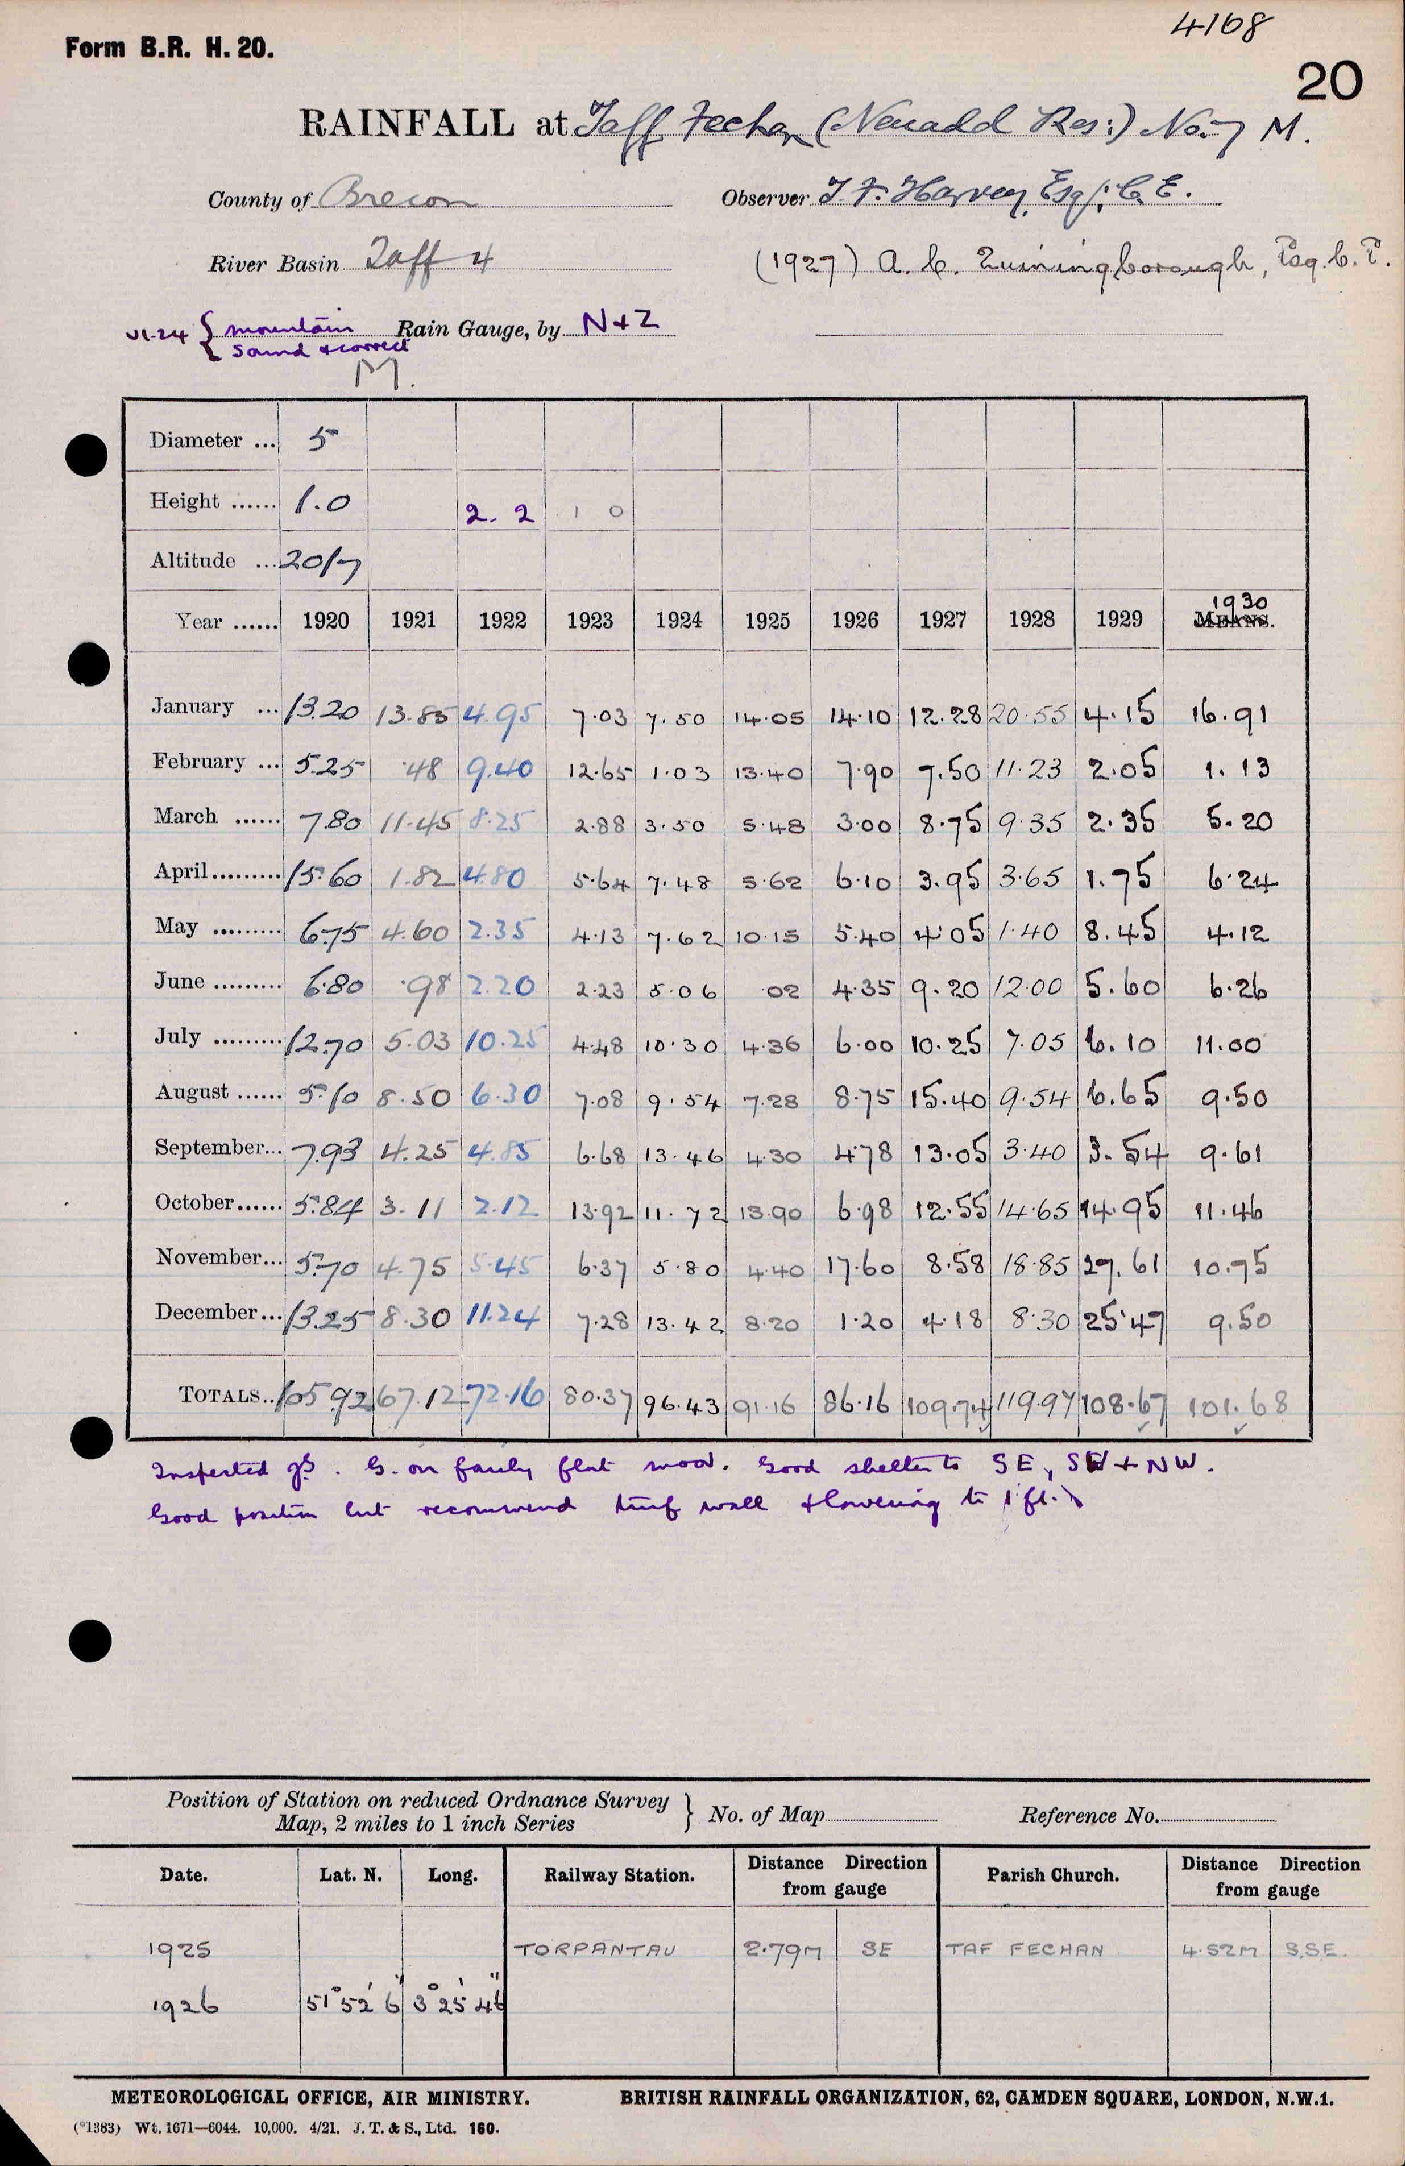 4168
Form B.R. H. 20.
20
RAINFALL at Taff Fechan (Neuadd Res:) No. 7 M.
County of Brecon Observer T. F. Harvey, Esq., C. E.
River Basin Taff 4 (1927) A. C.
VI.24 { mountain Rain Gauge, by N+Z
{ Sound & correct
M.
Diameter ... 5
Height ...... 1.0 2.2 1 0
Altitude ... 2017
Year ...... 1920 1921 1922 1923 1924 1925 1926 1927 1928 1929 1930 MEANS.
January ... 13.20 13.85 4.95 7.03 7.50 14.05 14.10 12.28 20.55 4.15 16.91
February ... 5.25 .48 9.40 12.65 1.03 13.40 7.90 7.50 11.23 2.05 1.13
March ...... 7.80 11.45 8.25 2.88 3.50 5.48 3.00 8.75 9.35 2.35 5.20
April......... 15.60 1.82 4.80 5.64 7.48 5.62 6.10 3.95 3.65 1.75 6.24
May ......... 6.75 4.60 2.35 4.13 7.62 10.15 5.40 4.05 1.40 8.45 4.12
June ......... 6.80 .98 2.20 2.23 5.06 .02 4.35 9.20 12.00 5.60 6.26
July ......... 12.70 5.03 10.25 4.48 10.30 4.36 6.00 10.25 7.05 6.10 11.00
August ...... 5.10 8.50 6.30 7.08 9.54 7.28 8.75 15.40 9.54 6.65 9.50
September... 7.93 4.25 4.85 6.68 13.46 4.30 4.78 13.05 3.40 3.54 9.61
October...... 5.84 3.11 2.12 13.92 11.72 13.90 6.98 12.55 14.65 14.95 11.46
November... 5.70 4.75 5.45 6.37 5.80 4.40 17.60 8.58 18.85 27.61 10.75
December... 13.25 8.30 11.24 7.28 13.42 8.20 1.20 4.18 8.30 25.47 9.50
TOTALS.. 105.92 67.12 72.16 80.37 96.43 91.16 86.16 109.74 119.97 108.67 101.68
Inspected G. on fairly flat moor. Good shelter to SE, SW + NW.
Good position but recommend turf wall & lowering to 1 ft.
Position of Station on reduced Ordnance Survey
Map, 2 miles to 1 inch Series } No. of Map Reference No.
Date. Lat. N. Long. Railway Station. Distance Direction from gauge Parish Church. Distance Direction from gauge
1925 TORPANTAU 2.79M SE TAF FECHAN 4.52M S.SE.
1926 51° 52' 6" 3° 25' 46"
METEOROLOGICAL OFFICE, AIR MINISTRY. BRITISH RAINFALL ORGANIZATION, 62, CAMDEN SQUARE, LONDON, N.W.1.
(*1383) Wt. 1671—6044. 10,000. 4/21. J. T. & S., Ltd. 160.